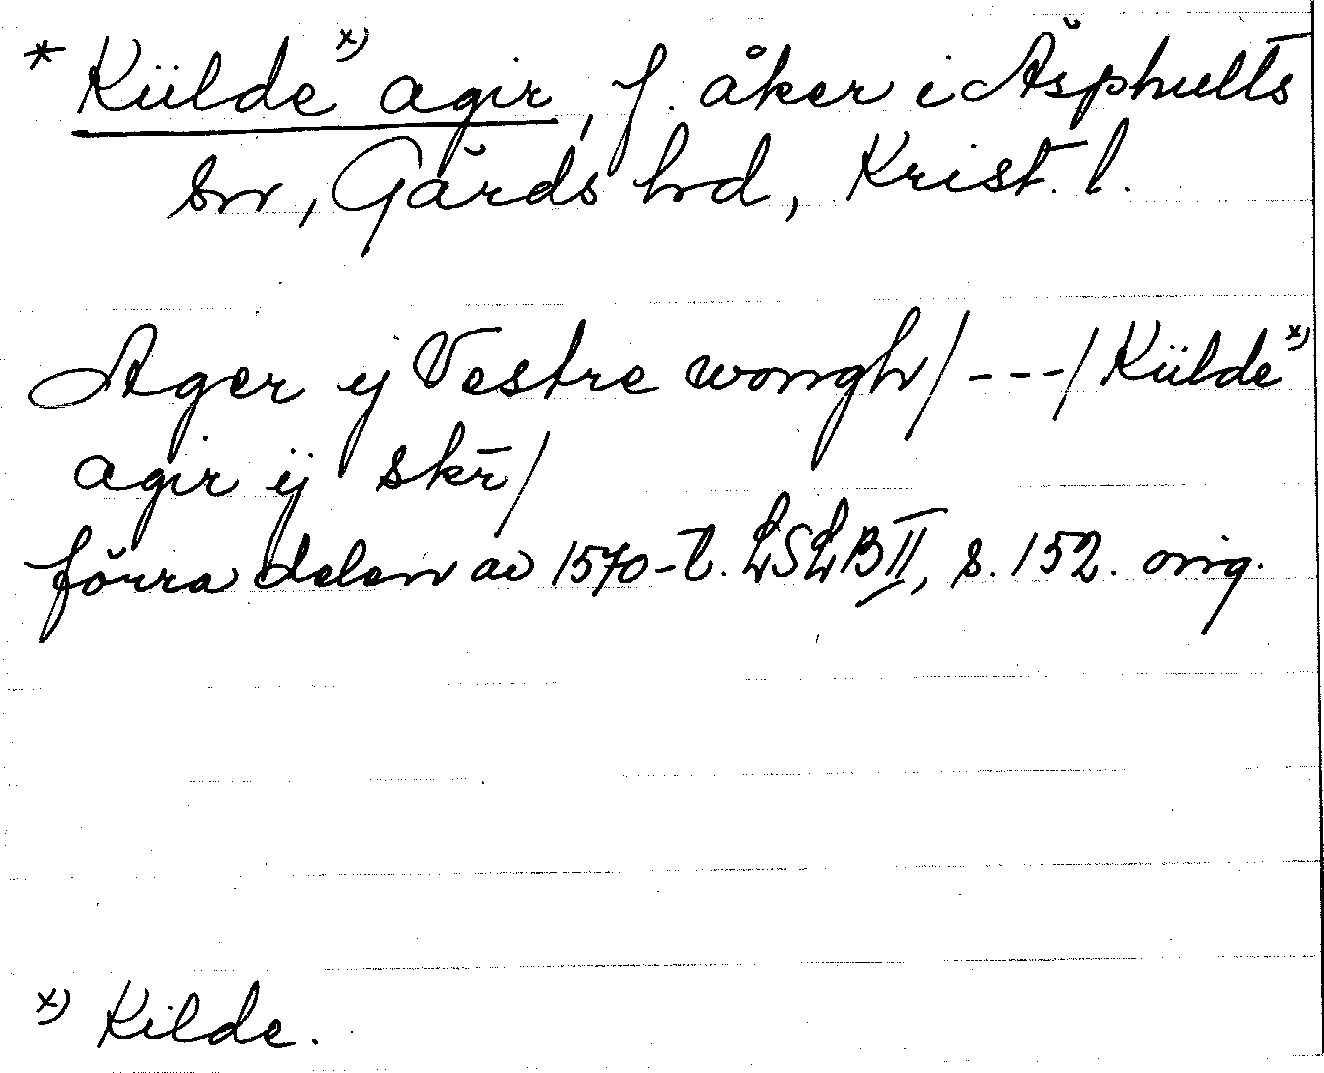 * Kiilde x) agir, f. åker i Äsphults
sn, Gärds hd, Krist. l.
Ager ij Vestre wongh/ ---/ Kiilde x)
agir ij skr̄/
förra delen av 1570-t. LSLB II, s. 152. orig.
x) Kilde.